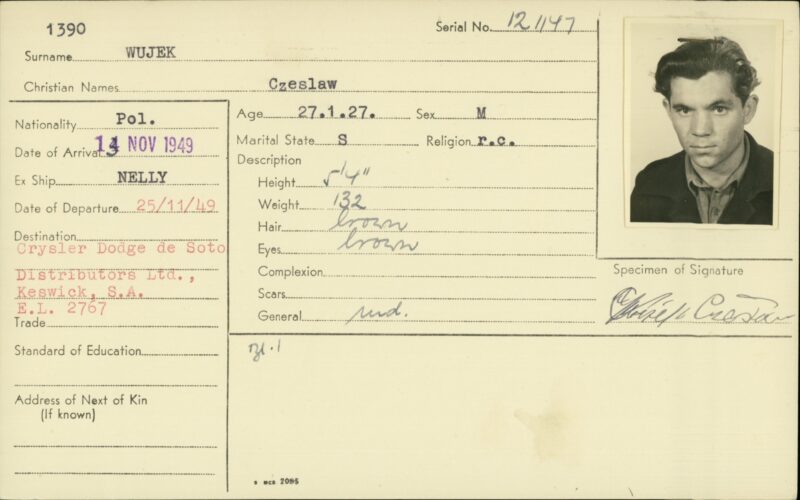 1390
Serial No. 121147
Surname WUJEK
Christian Names Czeslaw
Nationality Pol.
Date of Arrival 14 NOV 1949
Ex Ship NELLY
Date of Departure 25/11/49
Destination
Crysler Dodge de Soto
Distributors Ltd.,
Keswick, S.A.
E.L. 2767
Trade
Standard of Education
Address of Next of Kin
(If known)
Age 27.1.27. Sex M
Marital State S Religion r.c.
Description
Height 5'4"
Weight 132
Hair brown
Eyes brown
Complexion
Scars
General
Specimen of Signature
2095